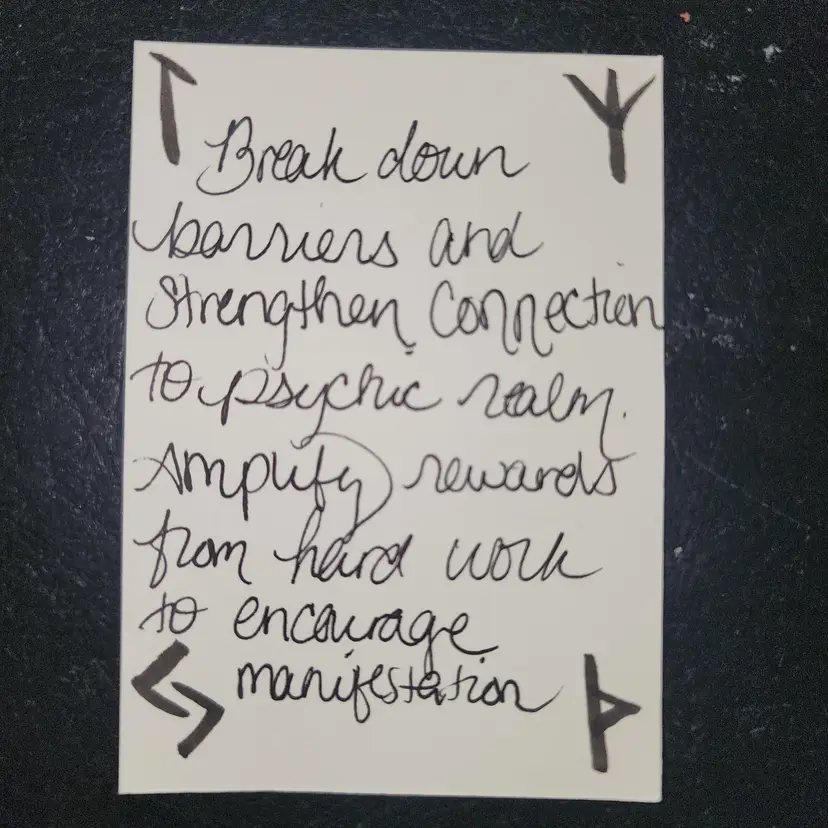 ᛚ ᛉ
Break down
barriers and
Strengthen Connection
to psychic realm.
Amplify rewards
from hard work
to encourage
manifestation
ᛃ ᚦ